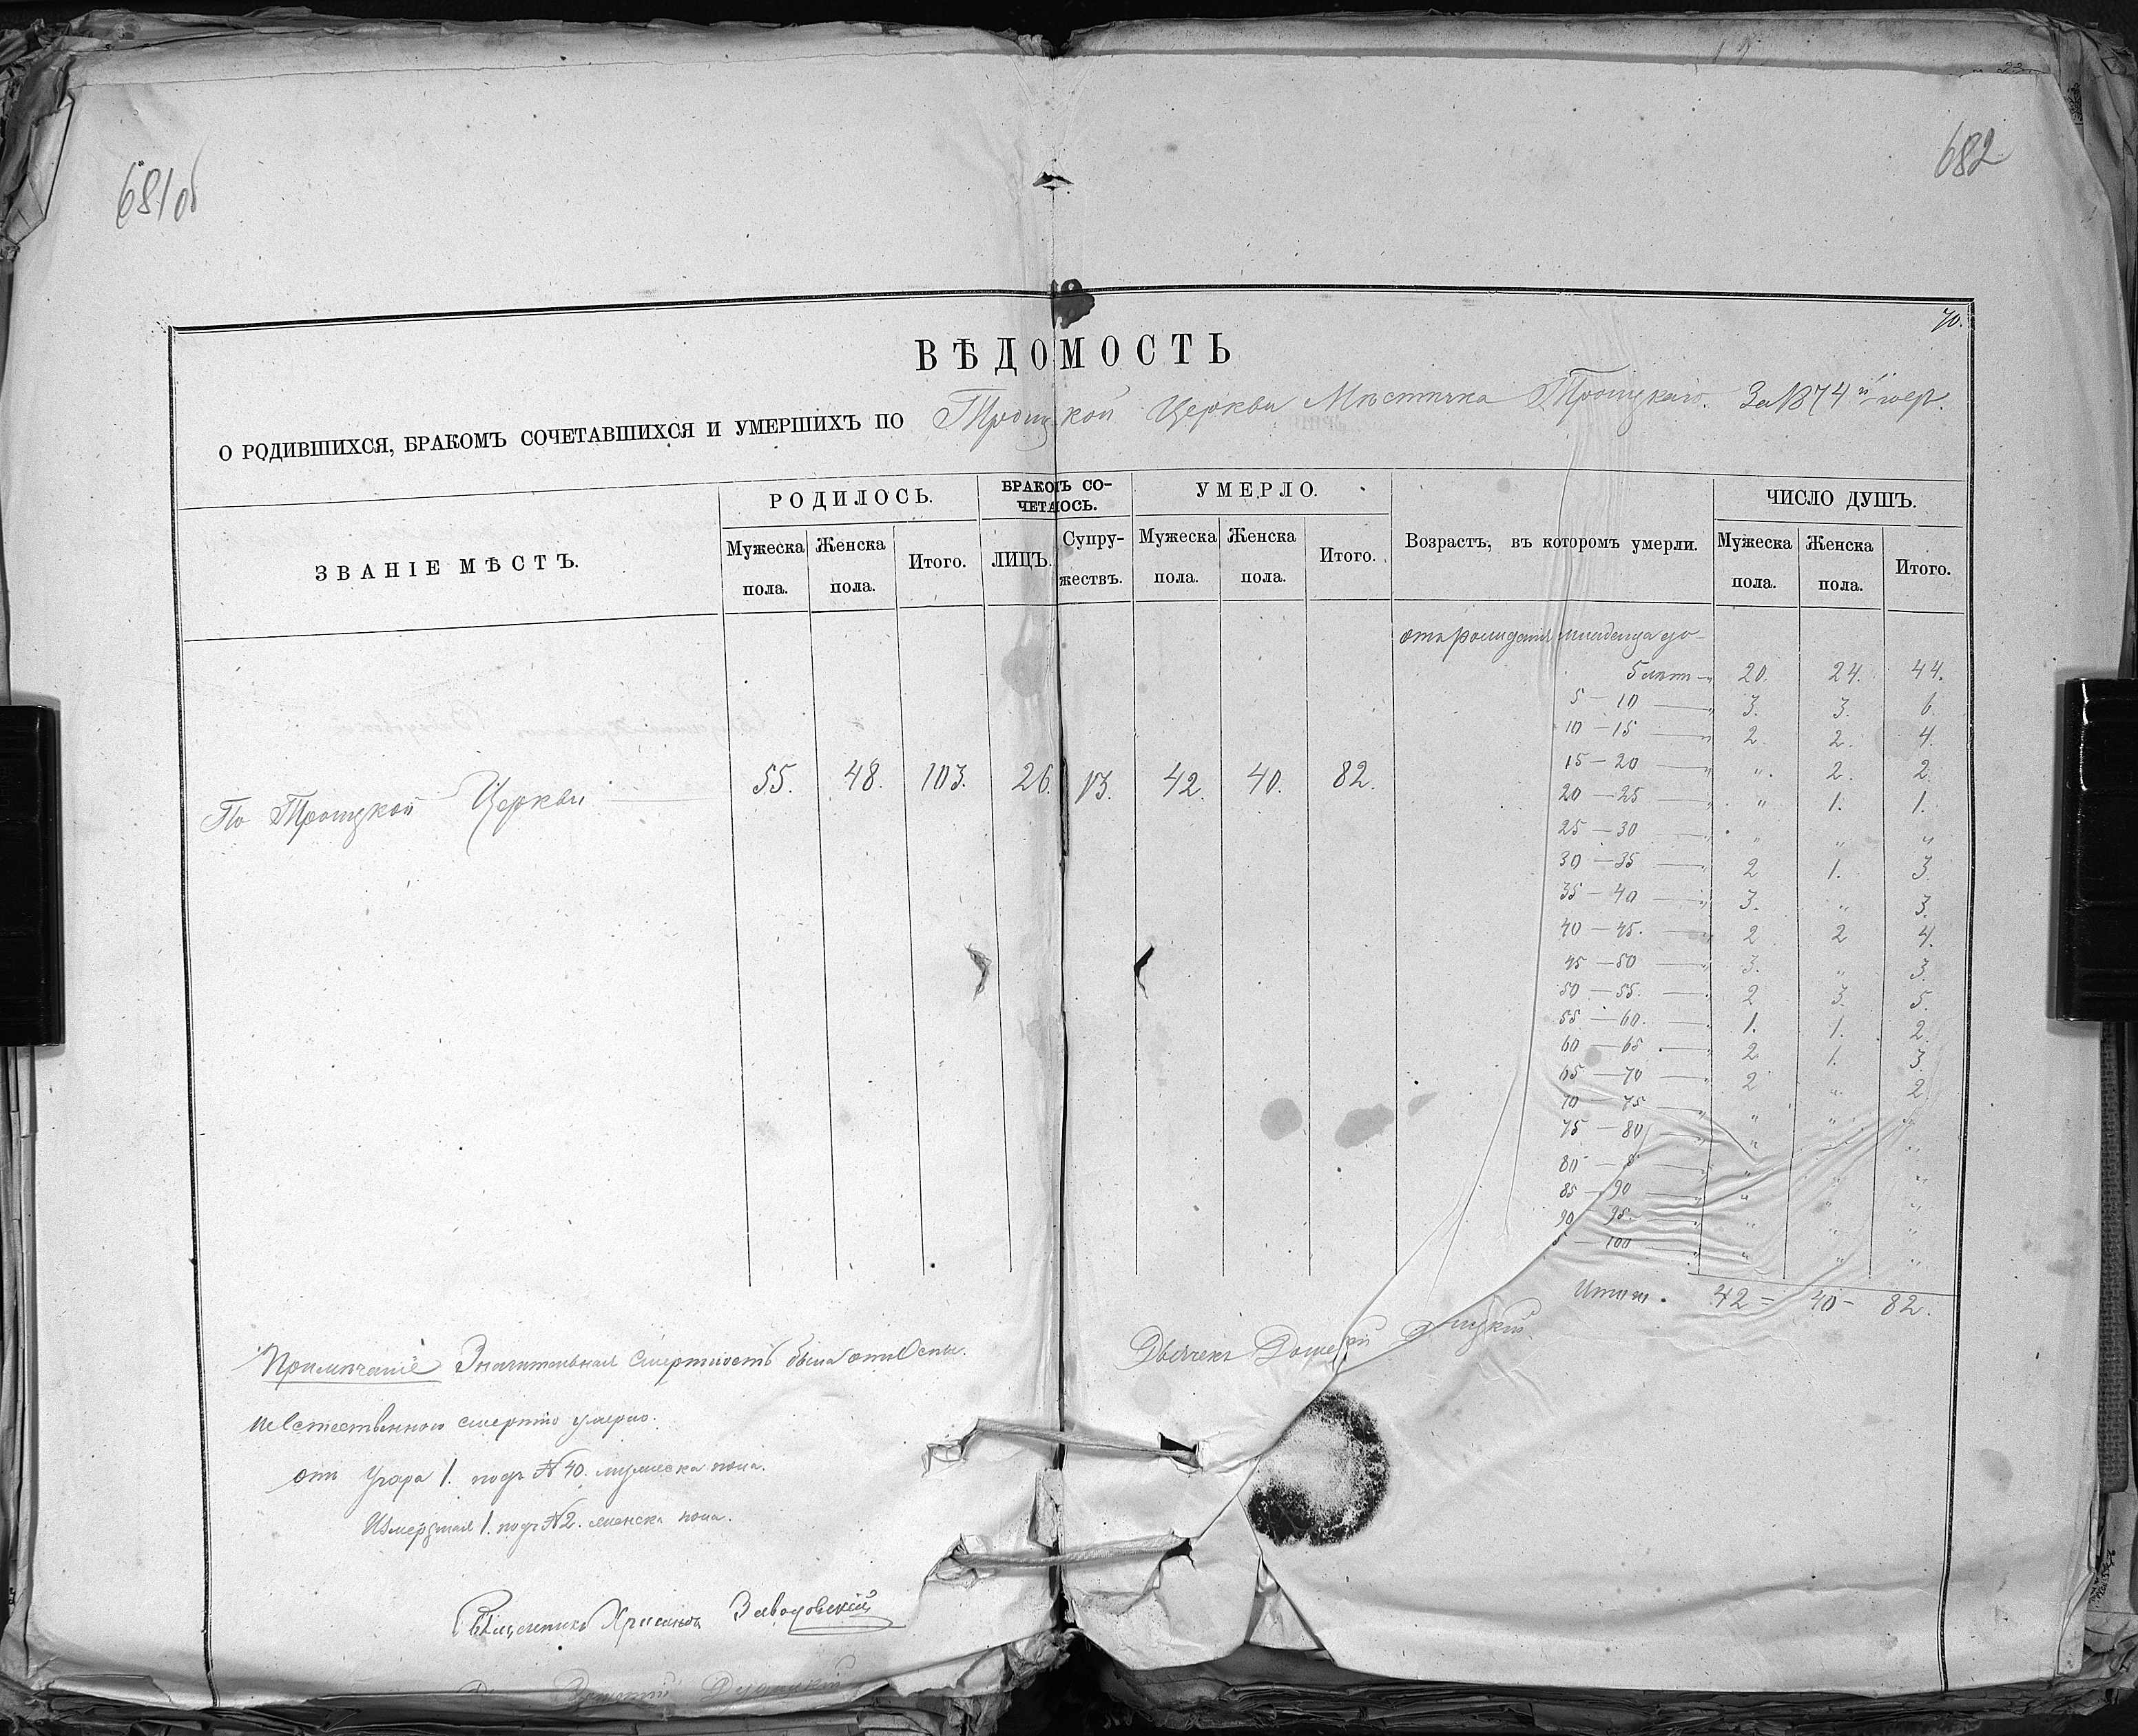 681 об
682
70.
ВѢДОМОСТЬ
О РОДИВШИХСЯ, БРАКОМЪ СОЧЕТАВШИХСЯ И УМЕРШИХЪ ПО Троицкой Церкви Мѣстечка Троицкаго. За 1874й годъ.
ЗВАНІЕ МѢСТЪ.
РОДИЛОСЬ.
Мужеска пола.
Женска пола.
Итого.
БРАКОМЪ СОЧЕТАЛОСЬ.
ЛИЦЪ.
Супружествъ.
УМЕРЛО.
Мужеска пола.
Женска пола.
Итого.
Возрастъ, въ которомъ умерли.
ЧИСЛО ДУШЪ.
Мужеска пола.
Женска пола.
Итого.
По Троицкой Церкви — 55. 48. 103. 26. 13. 42. 40. 82.
отъ рожденія младенца до
5 лѣтъ — 20. 24. 44.
5 — 10 — " 3. 3. 6.
10 — 15 — " 2 2. 4.
15 — 20 — " ". 2. 2.
20 — 25 — " " 1. 1.
25 — 30 — " " " "
30 — 35 — " 2 1. 3
35 — 40 — " 3. " 3.
40 — 45. — " 2 2 4.
45 — 50 — " 3. " 3.
50 — 55. — " 2 3. 5.
55 — 60. — " 1. 1. 2
60 — 65 — " 2 1. 3
65 — 70 — " 2 " 2
70 — 75 — " " " "
75 — 80 — " " " "
80 — 8 — " " " "
85 — 90 — " " " "
90 95 — " " " "
5 — 100 — " " " "
Итого. 42 = 40 — 82.
Примѣчаніе Значительная смертность была отъ Оспы.
Неестественною смертію умерло.
отъ Угара 1. подъ № 40. мужеска пола.
Измерзшая 1. подъ № 2. женска пола.
Священникъ Хрисанфъ Заводовскій